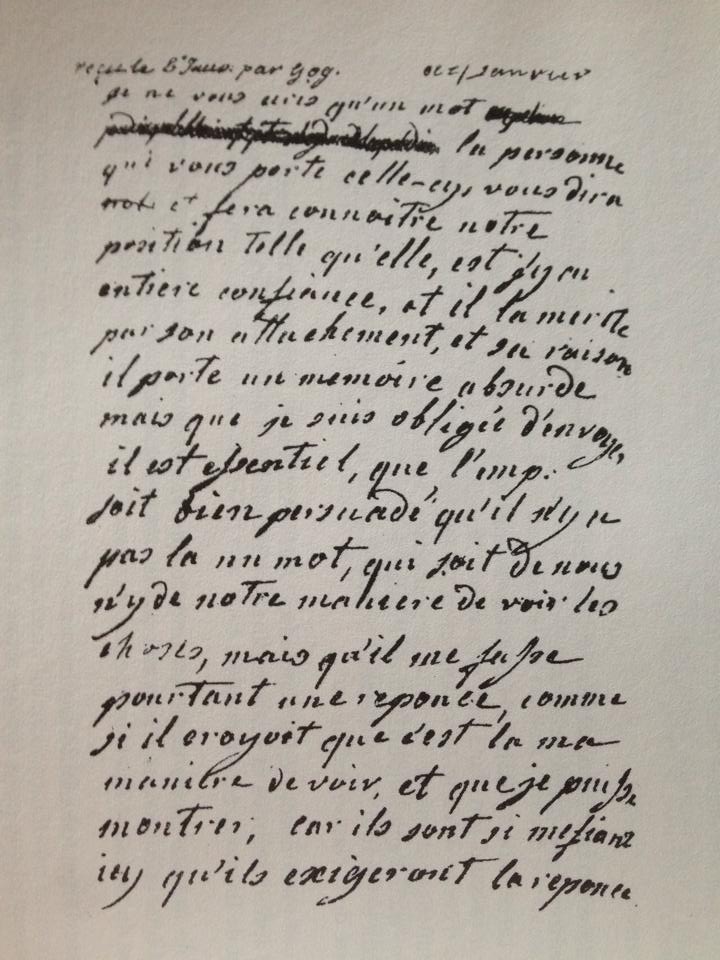 reçu le 8 Janv. par Gog. ce 4 Janvier
je ne vous dirai qu'un mot
la personne
qui vous porte celle-cy, vous dira
et fera connoitre notre
position telle qu'elle, est j'y ai
entiere confiance, et il la merite
par son attachement, et sa raison
il porte un memoire absurde
mais que je suis obligée d'envoyer,
il est essentiel, que l'emp.
soit bien persuadé qu'il n'y a
pas la un mot, qui soit de nous
n'y de notre maniere de voir les
choses, mais qu'il me fasse
pourtant une reponce, comme
si il croyoit que c'est la ma
maniere de voir, et que je puisse
montrer, car ils sont si mefiant
icy qu'ils exigeront la reponce